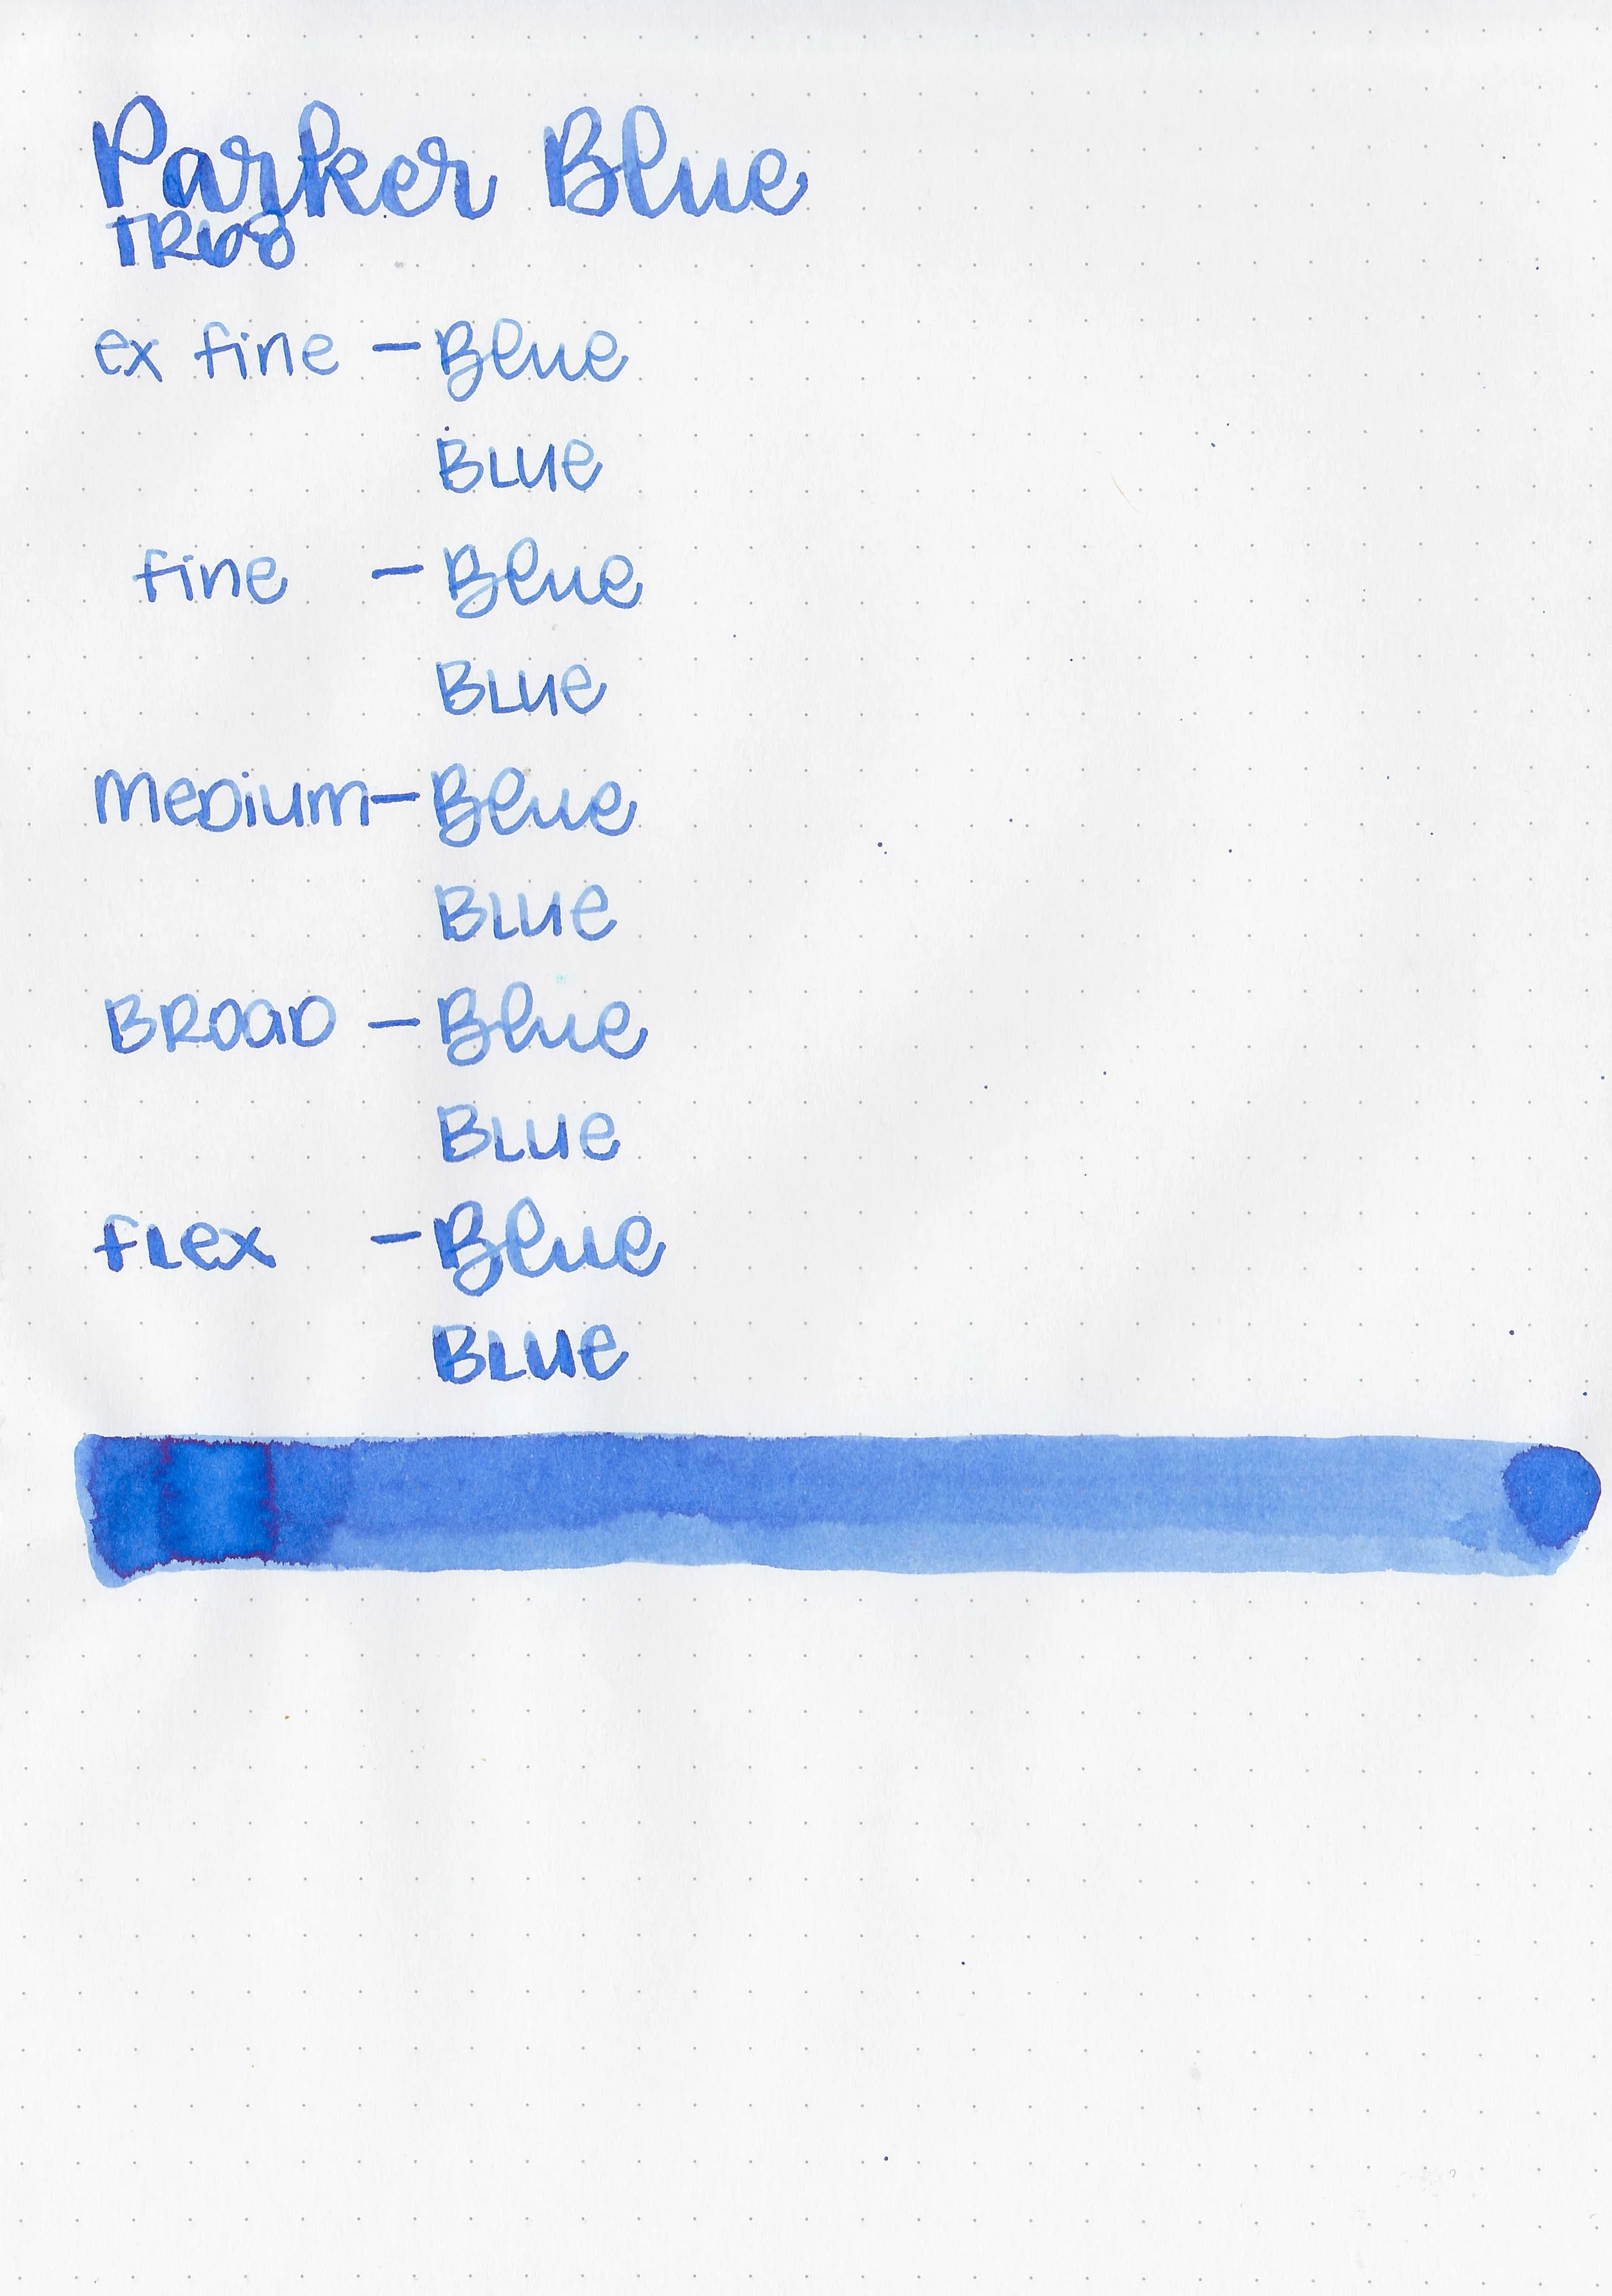 Parker Blue
TR68
ex fine - Blue
BLUe
fine - Blue
BLUe
meDium - Blue
BLUe
BROaD - Blue
BLUe
fLex - Blue
BLUe